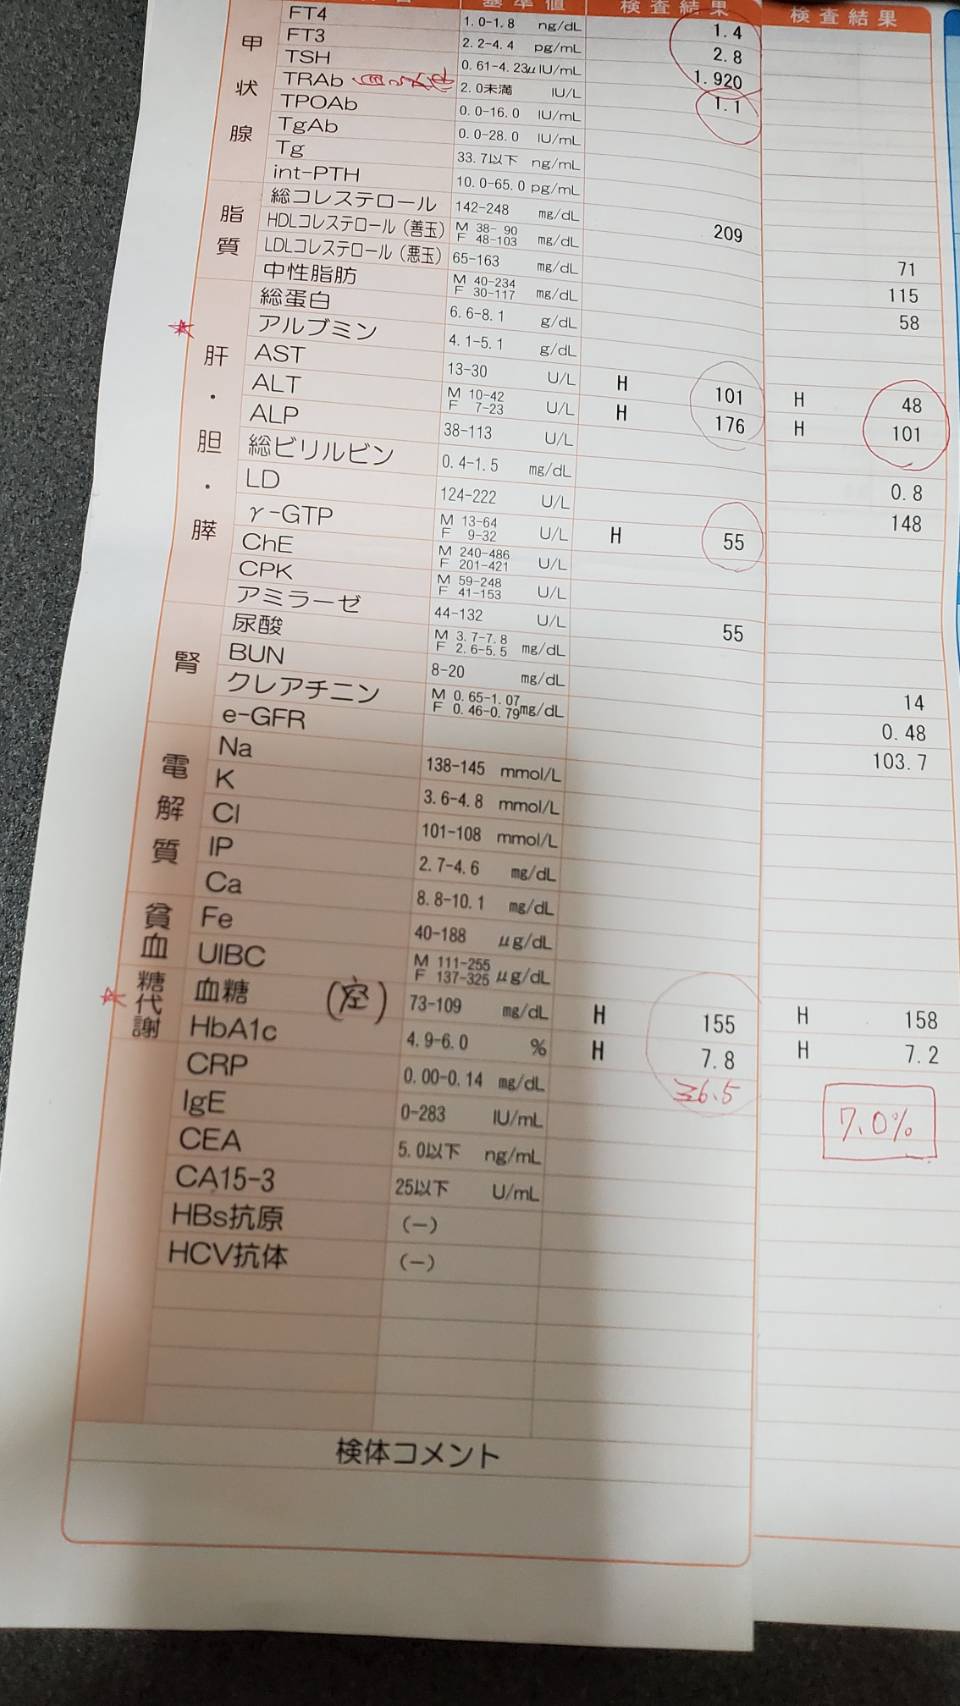 基準値 検査結果 検査結果
甲状腺
FT4 1.0-1.8 ng/dL 1.4
FT3 2.2-4.4 pg/mL 2.8
TSH 0.61-4.23μIU/mL 1.920
TRAb 2.0未満 IU/L 1.1
TPOAb 0.0-16.0 IU/mL
TgAb 0.0-28.0 IU/mL
Tg 33.7以下 ng/mL
int-PTH 10.0-65.0 pg/mL
脂質
総コレステロール 142-248 mg/dL 209
HDLコレステロール(善玉) M 38-90 F 48-103 mg/dL 71
LDLコレステロール(悪玉) 65-163 mg/dL 115
中性脂肪 M 40-234 F 30-117 mg/dL 58
肝・胆・膵
総蛋白 6.6-8.1 g/dL
アルブミン 4.1-5.1 g/dL
AST 13-30 U/L H 101 H 48
ALT M 10-42 F 7-23 U/L H 176 H 101
ALP 38-113 U/L
総ビリルビン 0.4-1.5 mg/dL 0.8
LD 124-222 U/L 148
γ-GTP M 13-64 F 9-32 U/L H 55
ChE M 240-486 F 201-421 U/L
CPK M 59-248 F 41-153 U/L
アミラーゼ 44-132 U/L 55
腎
尿酸 M 3.7-7.8 F 2.6-5.5 mg/dL
BUN 8-20 mg/dL 14
クレアチニン M 0.65-1.07 F 0.46-0.79 mg/dL 0.48
e-GFR 103.7
電解質
Na 138-145 mmol/L
K 3.6-4.8 mmol/L
Cl 101-108 mmol/L
IP 2.7-4.6 mg/dL
Ca 8.8-10.1 mg/dL
貧血
Fe 40-188 μg/dL
UIBC M 111-255 F 137-325 μg/dL
糖代謝
血糖 (空) 73-109 mg/dL H 155 H 158
HbA1c 4.9-6.0 % H 7.8 H 7.2
≧6.5 7.0%
CRP 0.00-0.14 mg/dL
IgE 0-283 IU/mL
CEA 5.0以下 ng/mL
CA15-3 25以下 U/mL
HBs抗原 (-)
HCV抗体 (-)
検体コメント